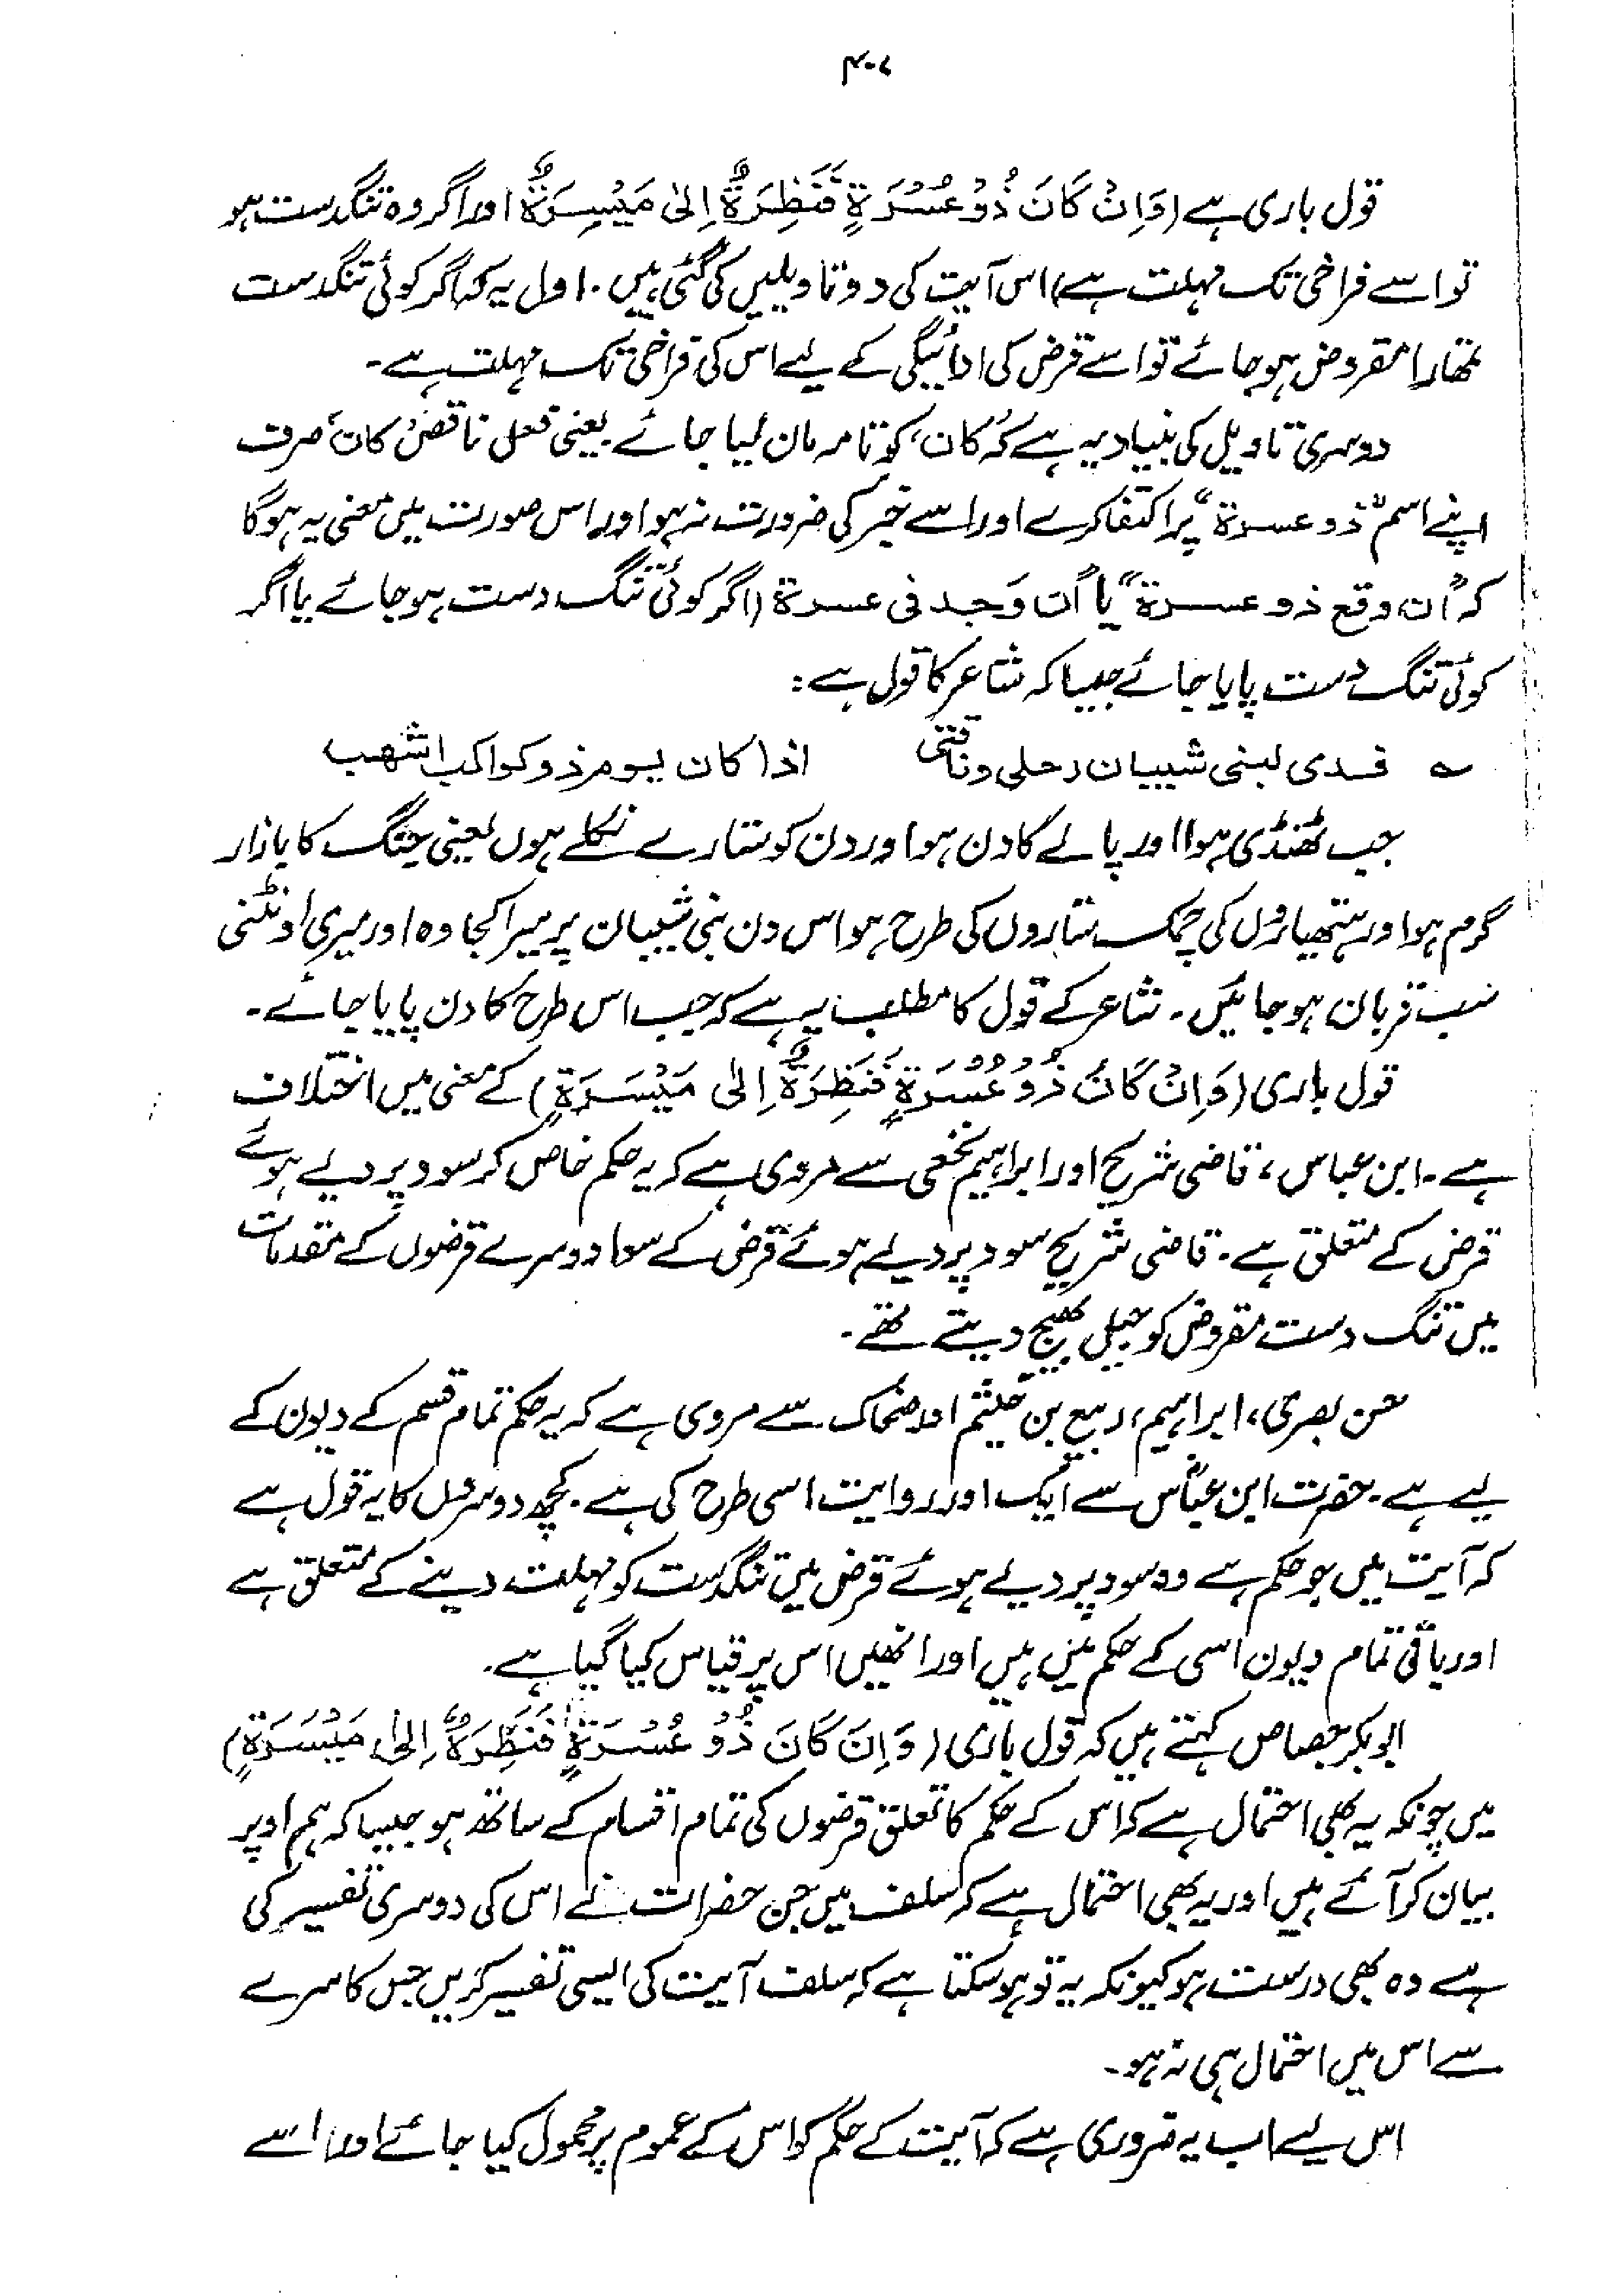 ۴۰۷
قول باری ہے (وَاِنْ كَانَ ذُوْ عُسْرَةٍ فَنَظِرَةٌ اِلىٰ مَيْسِرَةٌ اور اگر وہ تنگدست ہو
تو اسے فراخی تک مہلت ہے) اس آیت کی دو تاویلیں کی گئی ہیں۔ اول یہ کہ اگر کوئی تنگدست
تمھارا مقروض ہو جائے تو اسے قرض کی ادائیگی کے لیے اس کی فراخی تک مہلت ہے۔
دوسری تاویل کی بنیاد یہ ہے کہ 'کان' کو تامہ مان لیا جائے۔ یعنی فعل ناقص 'کان' صرف
اپنے اسم "ذو عسرۃ" پر اکتفا کرے اور اسے خبر کی ضرورت نہ ہو اور اس صورت میں معنی یہ ہوگا
کہ "ان وقع ذو عسرۃ" یا "ان وَجد فی عسرۃ (اگر کوئی تنگ دست ہو جائے یا اگر
کوئی تنگ دست پایا جائے جیسا کہ شاعر کا قول ہے:
؎ فدی لبنی شیبان رحلی وناقتی اذا کان یوم ذو کواکب اشهب
جب ٹھنڈی ہوا اور پالے کا دن ہو اور دن کو ستارے نکلے ہوں یعنی جنگ کا بازار
گرم ہو اور ہتھیاروں کی چمک ستاروں کی طرح ہو اس دن بنی شیبان پر میرا کجاوہ اور میری اونٹنی
سب قربان ہو جائیں۔ شاعر کے قول کا مطلب یہ ہے کہ جب اس طرح کا دن پایا جائے۔
قول باری (وَاِنْ كَانَ ذُوْ عُسْرَةٍ فَنَظِرَةٌ اِلىٰ مَيْسَرَةٍ) کے معنی میں اختلاف
ہے۔ ابن عباس، قاضی شریح اور ابراہیم نخعی سے مروی ہے کہ یہ حکم خاص کر سود پر دیے ہوئے
قرض کے متعلق ہے۔ قاضی شریح سود پر دیے ہوئے قرض کے سوا دوسرے قرضوں کے مقدمات
میں تنگ دست مقروض کو جیل بھیج دیتے تھے۔
حسن بصری، ابراہیم، ربیع بن خیثم اور ضحاک سے مروی ہے کہ یہ حکم تمام قسم کے دیون کے
لیے ہے۔ حضرت ابن عباسؓ سے ایک اور روایت اسی طرح کی ہے۔ کچھ دوسروں کا یہ قول ہے
کہ آیت میں جو حکم ہے وہ سود پر دیے ہوئے قرض میں تنگدست کو مہلت دینے کے متعلق ہے
اور باقی تمام دیون اسی کے حکم میں ہیں اور انھیں اس پر قیاس کیا گیا ہے۔
ابوبکر جصاص کہتے ہیں کہ قول باری (وَاِنَ كَانَ ذُوْ عُسْرَةٍ فَنَظِرَةٌ اِلىٰ مَيْسَرَةٍ)
میں چونکہ یہ بھی احتمال ہے کہ اس کے حکم کا تعلق قرضوں کی تمام اقسام کے ساتھ ہو جیسا کہ ہم اوپر
بیان کر آئے ہیں اور یہ بھی احتمال ہے کہ سلف میں جن حضرات نے اس کی دوسری تفسیر کی
ہے وہ بھی درست ہو کیونکہ یہ تو ہو سکتا ہے کہ سلف آیت کی ایسی تفسیر کریں جس کا سرے
سے اس میں احتمال ہی نہ ہو۔
اس لیے اب یہ ضروری ہے کہ آیت کے حکم کو اس کے عموم پر محمول کیا جائے اور اسے